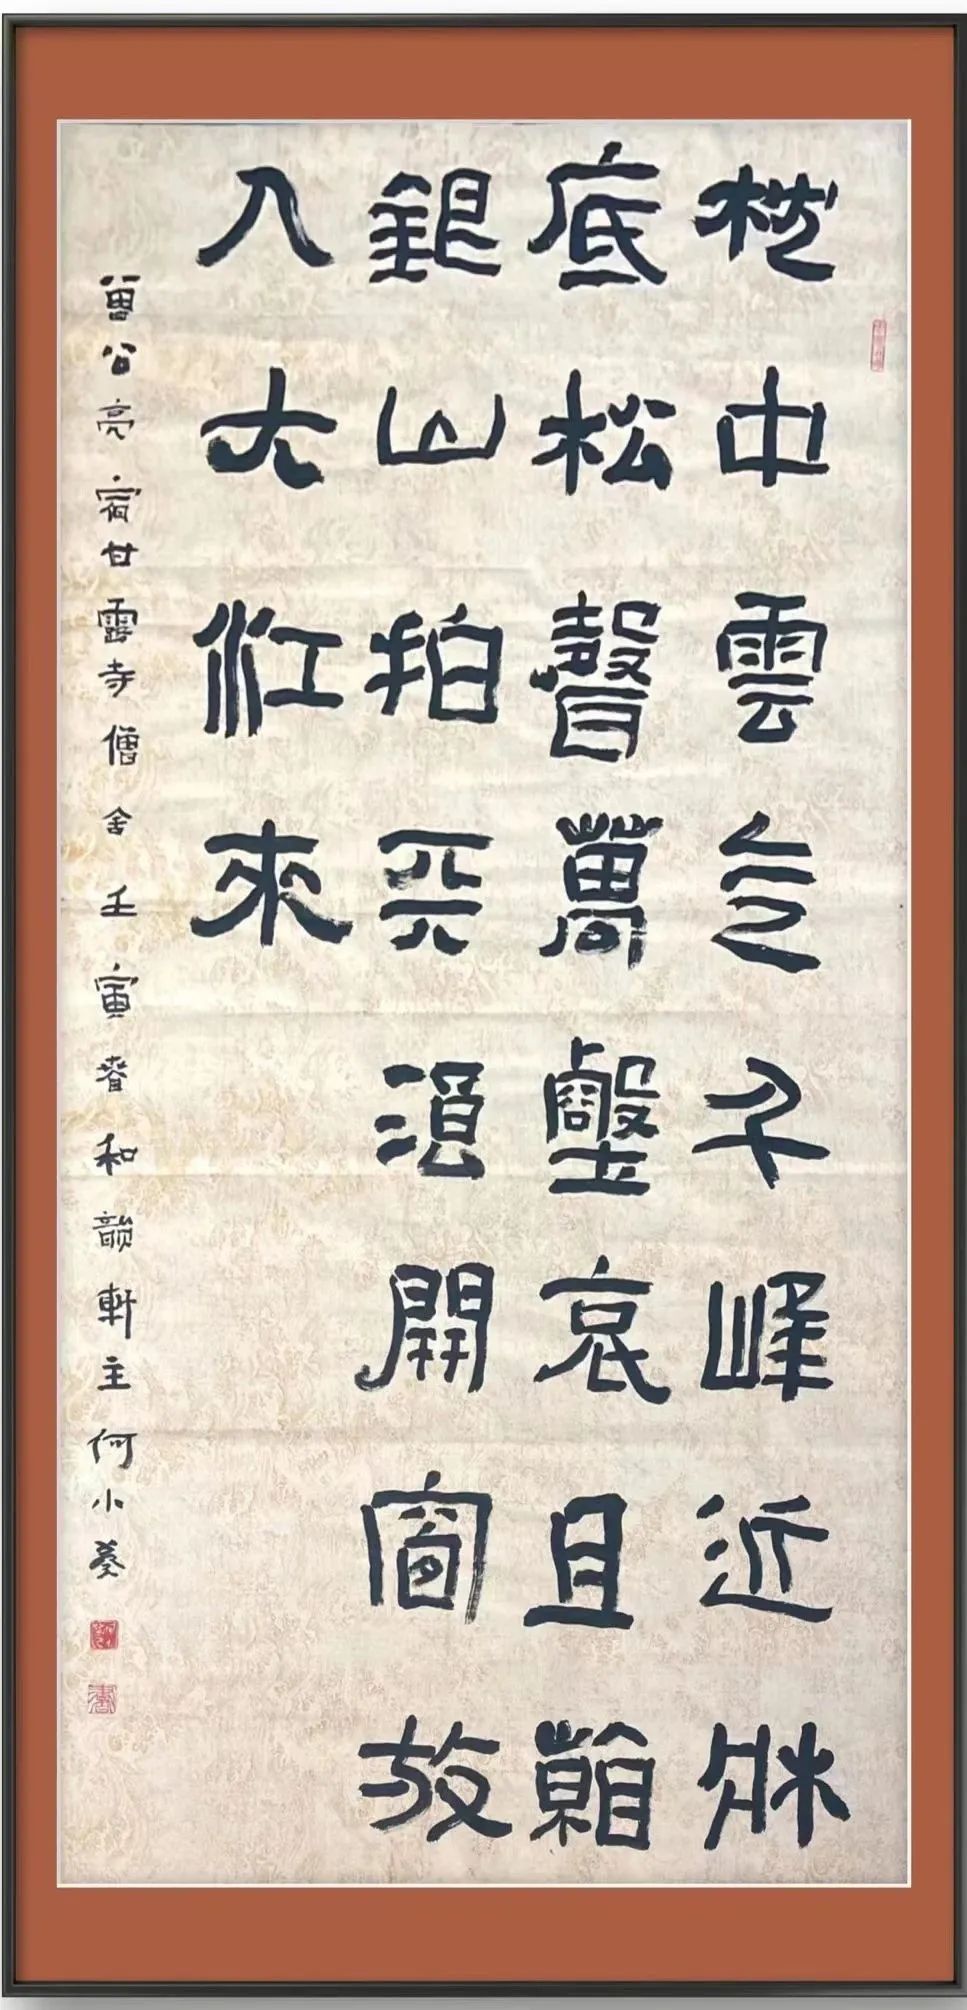 枕中雲气千峰近牀
底松聲萬壑哀且看
銀山拍天浪開窗放
入大江來
曾公亮宿甘露寺僧舍壬寅春和韻軒主何小